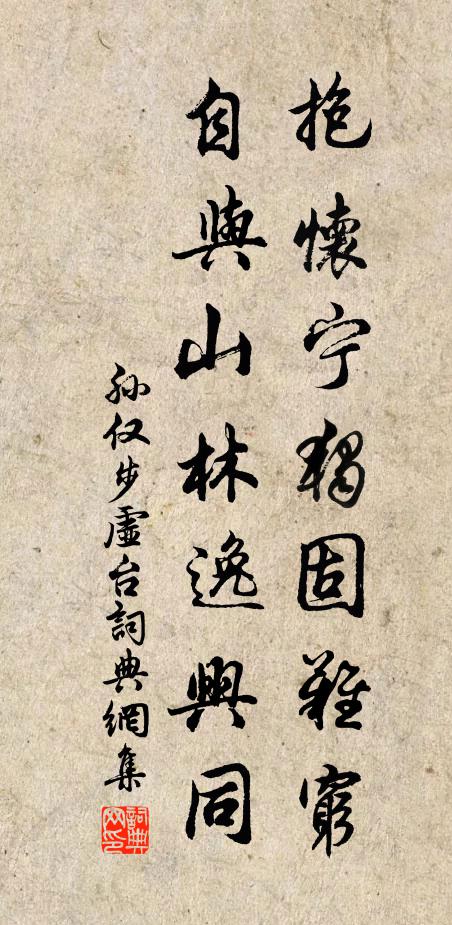 抱懷宁獨固難窮
自與山林逸興同
孙仅步虛台詞典網集
詞典网印